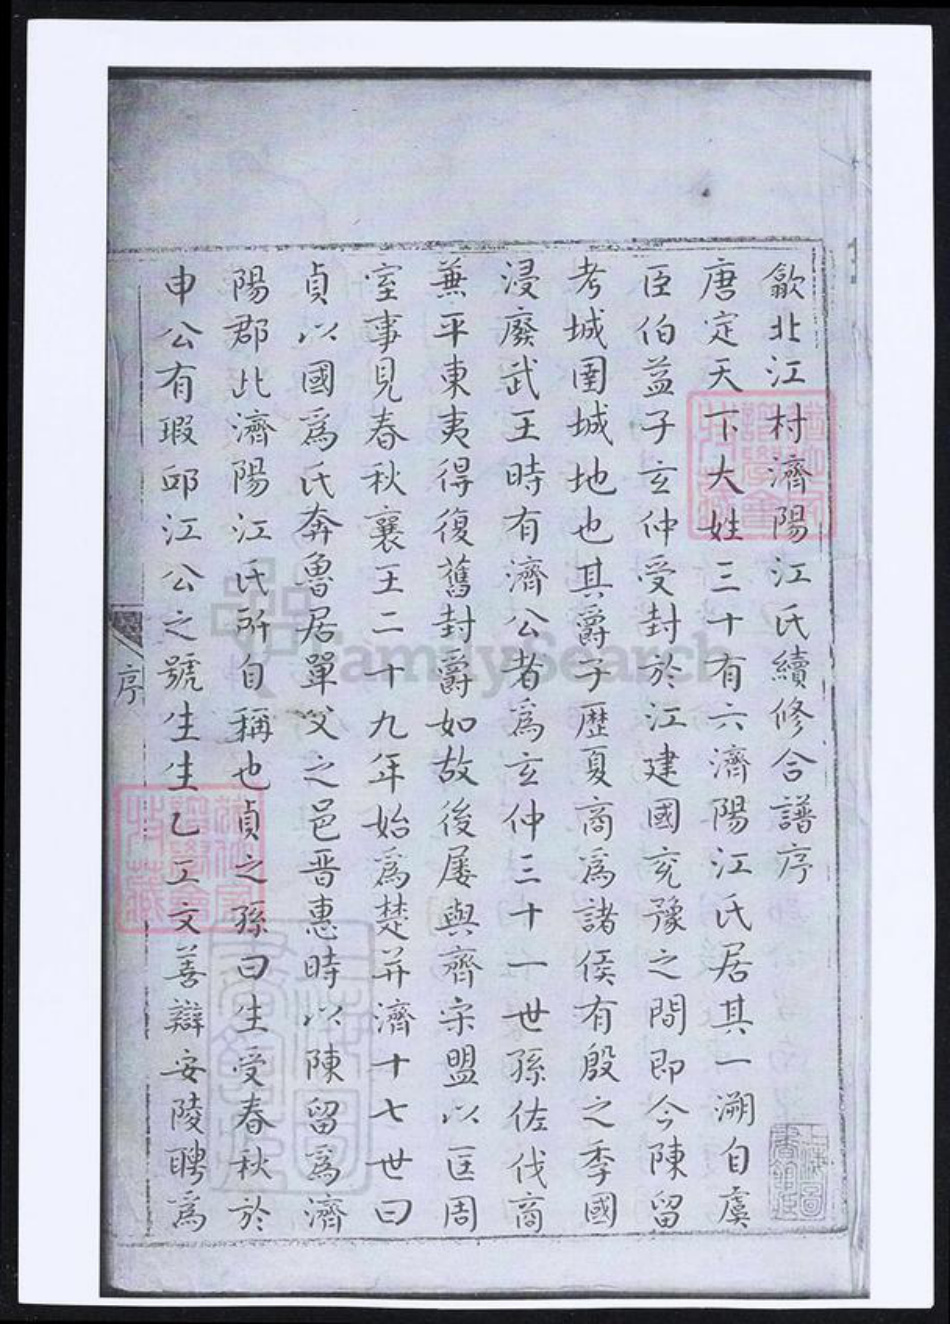 歙北江村濟陽江氏續修合譜序
唐定天下大姓三十有六濟陽江氏居其一溯自虞
臣伯益子玄仲受封於江建國兖豫之間即今陳留
考城圉城地也其爵子歷夏商為諸侯有殷之季國
浸廢武王時有濟公者為玄仲三十一世孫佐伐商
蕪平東夷得復舊封爵如故後屡與齊宋盟以匡周
室事見春秋襄王二十九年始為楚并濟十七世曰
貞以國為氏奔魯居單父之邑晋惠時以陳留為濟
陽郡此濟陽江氏所自稱也貞之孫曰生受春秋於
申公有瑕邱江公之號生生乙工文善辯安陵聘為
序
FamilySearch